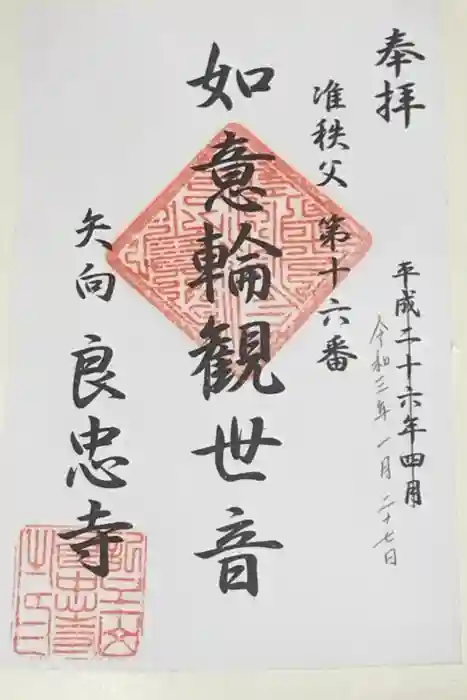 奉拝
平成二十六年四月
令和三年一月二十七日
准秩父 第十六番
如意輪観世音
矢向 良忠寺